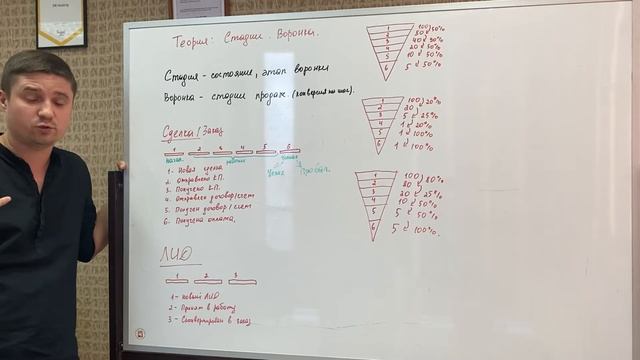 Теория: Стадии. Воронки.
Стадия - состояние, этап воронки
Воронка - стадии продаж. (конверсия по шаг).
Сделки / Заказ
1 2 3 4 5 6
начал. рабочие
Успех Провал
1 - Новая сделка
2. Отправлено КП.
3. Получено КП.
4. Отправлен договор/счет
5. Получен договор/счет
6. Получена оплата.
ЛИД
1 2 3
1 - Новый ЛИД
2 - Принят в работу
3 - Сконвертирован в заказ
1 100
2 50%
3 30%
4 20 50%
5 10 50%
6 5 50%
1 100 20%
2 20
3 5 25%
4 1 20%
5 1 100%
6 1 100%
1 100 80%
2 80
3 20 25%
4 10 50%
5 5 50%
6 5 100%.